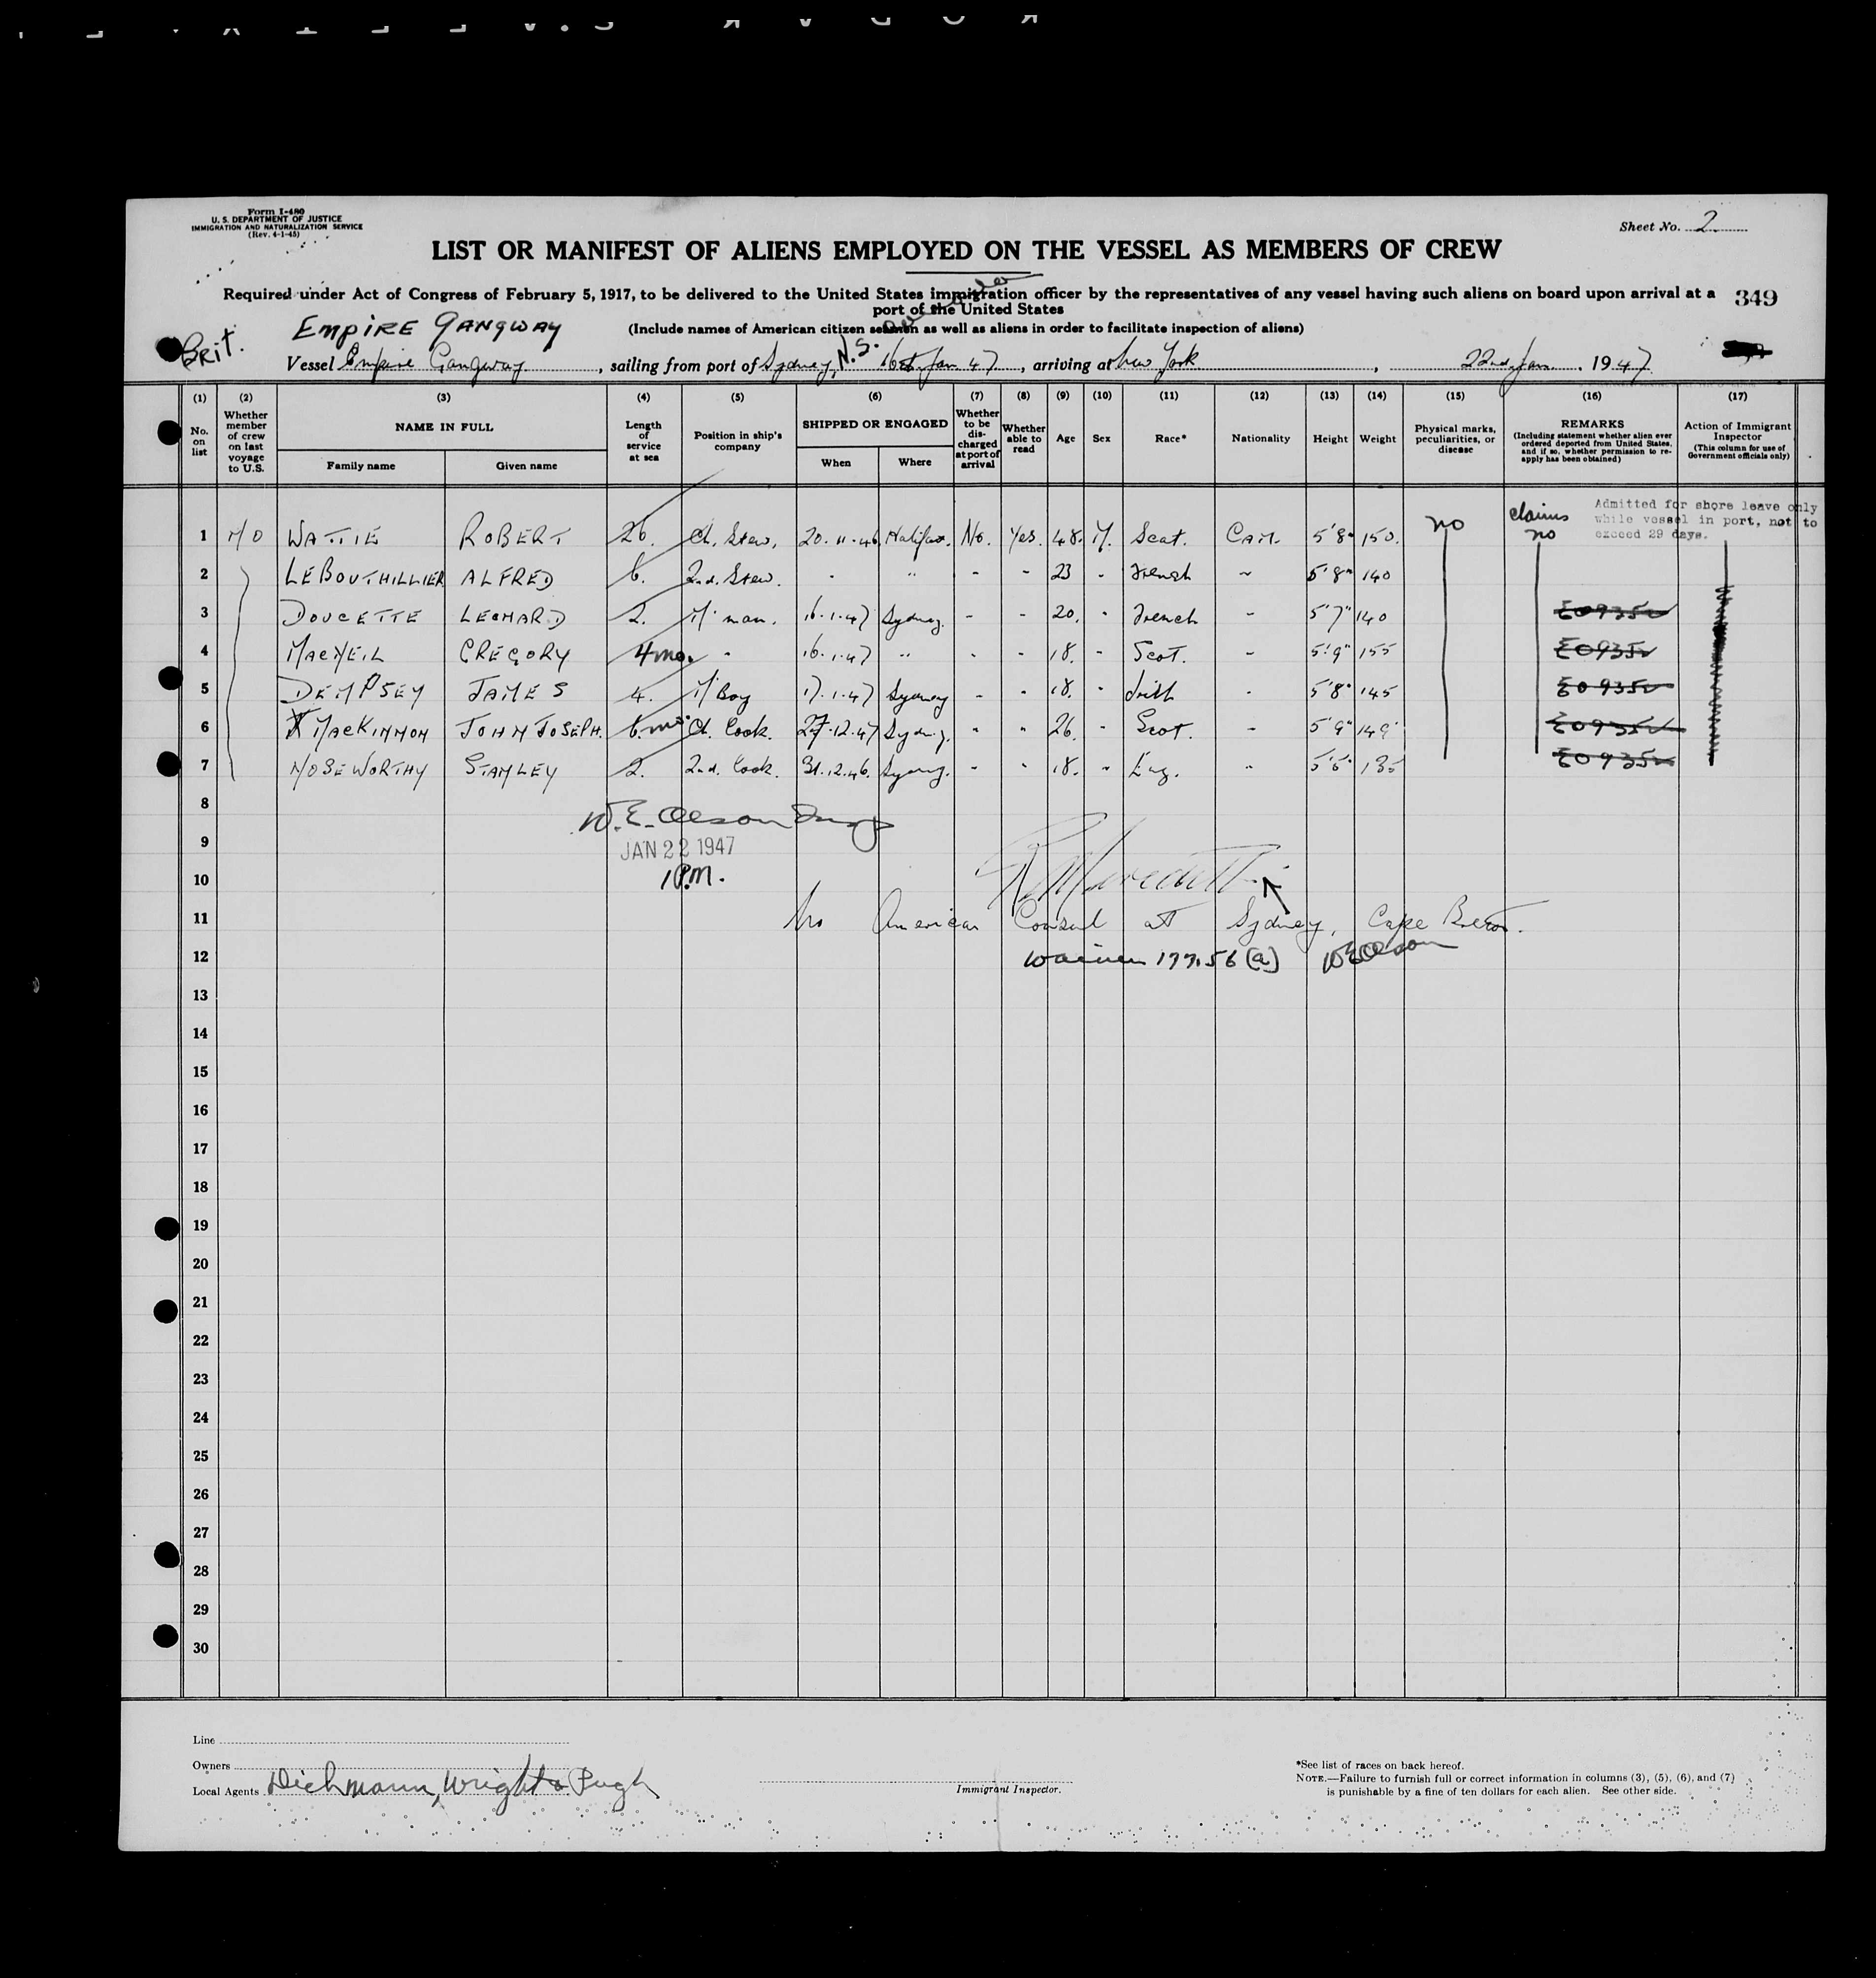 Form I-480
U. S. DEPARTMENT OF JUSTICE
IMMIGRATION AND NATURALIZATION SERVICE
(Rev. 4-1-45)
Sheet No. 2.
LIST OR MANIFEST OF ALIENS EMPLOYED ON THE VESSEL AS MEMBERS OF CREW
Required under Act of Congress of February 5, 1917, to be delivered to the United States immigration officer by the representatives of any vessel having such aliens on board upon arrival at a
port of the United States
349
(Include names of American citizen seamen as well as aliens in order to facilitate inspection of aliens)
EMPIRE GANGWAY
BRIT.
Vessel Empire Gangway, sailing from port of Sydney, N.S. 16th Jan 47, arriving at New York, 22nd Jan. 1947
(1) (2) (3) (4) (5) (6) (7) (8) (9) (10) (11) (12) (13) (14) (15) (16) (17)
No. on list
Whether member of crew on last voyage to U.S.
NAME IN FULL
Family name Given name
Length of service at sea
Position in ship's company
SHIPPED OR ENGAGED
When Where
Whether to be discharged at port of arrival
Whether able to read
Age
Sex
Race*
Nationality
Height
Weight
Physical marks, peculiarities, or disease
REMARKS
(Including statement whether alien ever ordered deported from United States, and if so, whether permission to re-apply has been obtained)
Action of Immigrant Inspector
(This column for use of Government officials only)
Admitted for shore leave only
while vessel in port, not to
exceed 29 days.
1 NO WATTIE ROBERT 26. Ch. Stew. 20.11.46 Halifax. No. Yes. 48. M. Scot. CAN. 5'8" 150. no claims no
2 LEBOUTHILLIER ALFRED 6. 2nd. Stew. - " - - 23 - French - 5'8" 140
3 DOUCETTE LEONARD 2. M'man. 16.1.47 Sydney. - - 20. - French - 5'7" 140 E09352
4 MACNEIL GREGORY 4 mo. - 16.1.47 " - - 18. - Scot. - 5'9" 155 E09352
5 DEMPSEY JAMES 4. M'Boy 17.1.47 Sydney - - 18. - Irish - 5'8" 145 E09352
6 X MACKINNON JOHN JOSEPH. 6. mo. Ch. Cook. 27.12.47 Sydney. - - 26. - Scot. - 5'9" 149 E09352
7 NOSEWORTHY STANLEY 2. 2nd. Cook. 31.12.46. Sydney. - - 18. - Eng. - 5'5" 135 E09352
8
W. E. Olson Insp
9
JAN 22 1947
10
1 P.M.
11
No American Consul at Sydney, Cape Breton.
12
Waiver 177.56 (a) W E Olson
13
14
15
16
17
18
19
20
21
22
23
24
25
26
27
28
29
30
Line
Owners
Local Agents Dichmann, Wright & Pugh
Immigrant Inspector.
*See list of races on back hereof.
NOTE.—Failure to furnish full or correct information in columns (3), (5), (6), and (7)
is punishable by a fine of ten dollars for each alien. See other side.